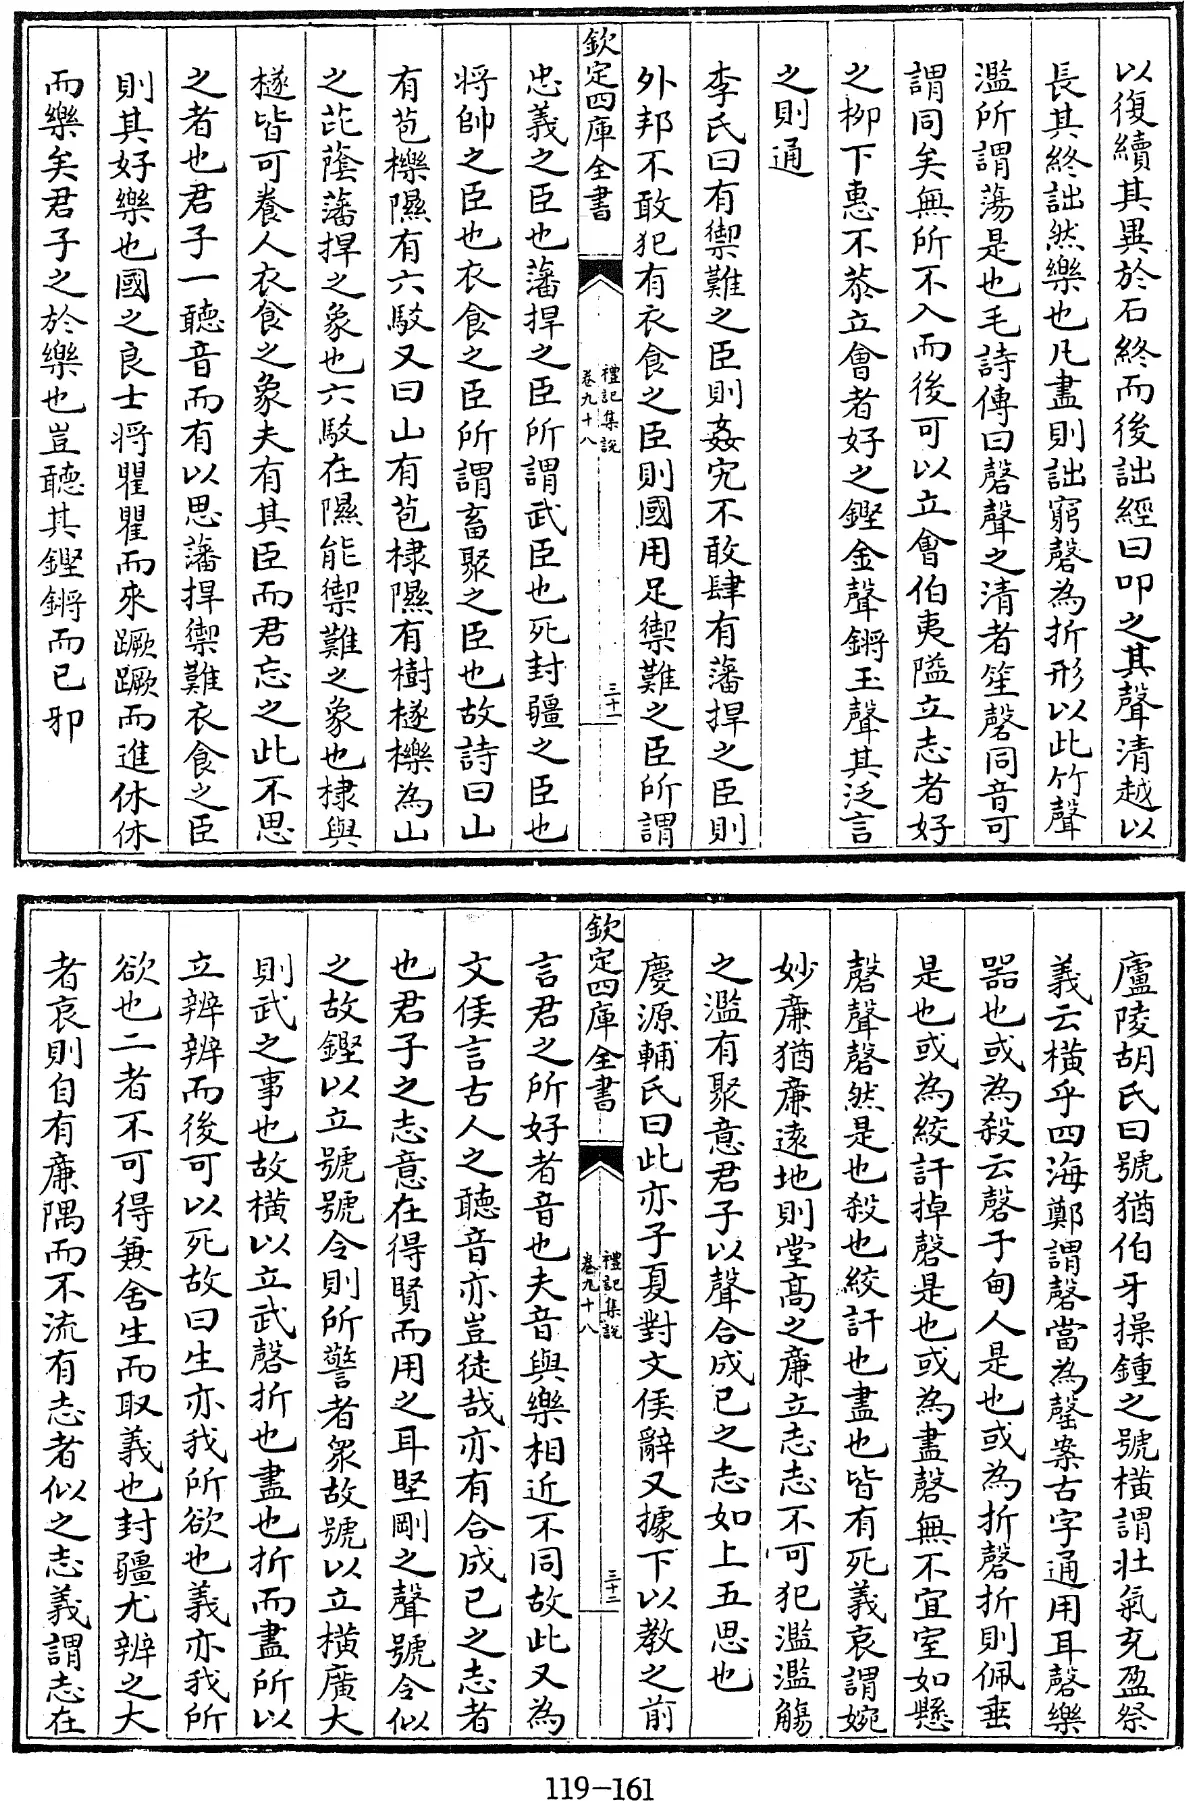 以復續其異於石終而後詘經曰叩之其聲清越以
長其終詘然樂也凡盡則詘窮磬為折形以此竹聲
濫所謂蕩是也毛詩傳曰磬聲之清者笙磬同音可
謂同矣無所不入而後可以立會伯夷隘立志者好
之柳下惠不恭立會者好之鏗金聲鏘玉聲其泛言
之則通
李氏曰有禦難之臣則姦宄不敢肆有藩捍之臣則
外邦不敢犯有衣食之臣則國用足禦難之臣所謂
欽定四庫全書
禮記集說
卷九十八
三十一
忠義之臣也藩捍之臣所謂武臣也死封疆之臣也
將帥之臣也衣食之臣所謂畜聚之臣也故詩曰山
有苞櫟隰有六駮又曰山有苞棣隰有樹檖櫟為山
之茈蔭藩捍之象也六駮在隰能禦難之象也棣與
檖皆可養人衣食之象夫有其臣而君忘之此不思
之者也君子一聽音而有以思藩捍禦難衣食之臣
則其好樂也國之良士將瞿瞿而來蹶蹶而進休休
而樂矣君子之於樂也豈聽其鏗鏘而已邪
廬陵胡氏曰號猶伯牙操鍾之號橫謂壯氣充盈祭
義云橫乎四海鄭謂磬當為罄案古字通用耳磬樂
器也或為殺云磬于甸人是也或為折磬折則佩垂
是也或為絞訐掉磬是也或為盡磬無不宜室如懸
磬聲磬然是也殺也絞訐也盡也皆有死義哀謂婉
妙廉猶廉遠地則堂高之廉立志志不可犯濫濫觴
之濫有聚意君子以聲合成已之志如上五思也
慶源輔氏曰此亦子夏對文侯辭又據下以教之前
欽定四庫全書
禮記集說
卷九十八
三十二
言君之所好者音也夫音與樂相近不同故此又為
文侯言古人之聽音亦豈徒哉亦有合成已之志者
也君子之志意在得賢而用之耳堅剛之聲號令似
之故鏗以立號號令則所警者眾故號以立橫廣大
則武之事也故橫以立武磬折也盡也折而盡所以
立辨辨而後可以死故曰生亦我所欲也義亦我所
欲也二者不可得兼舍生而取義也封疆尤辨之大
者哀則自有廉隅而不流有志者似之志義謂志在
119-161